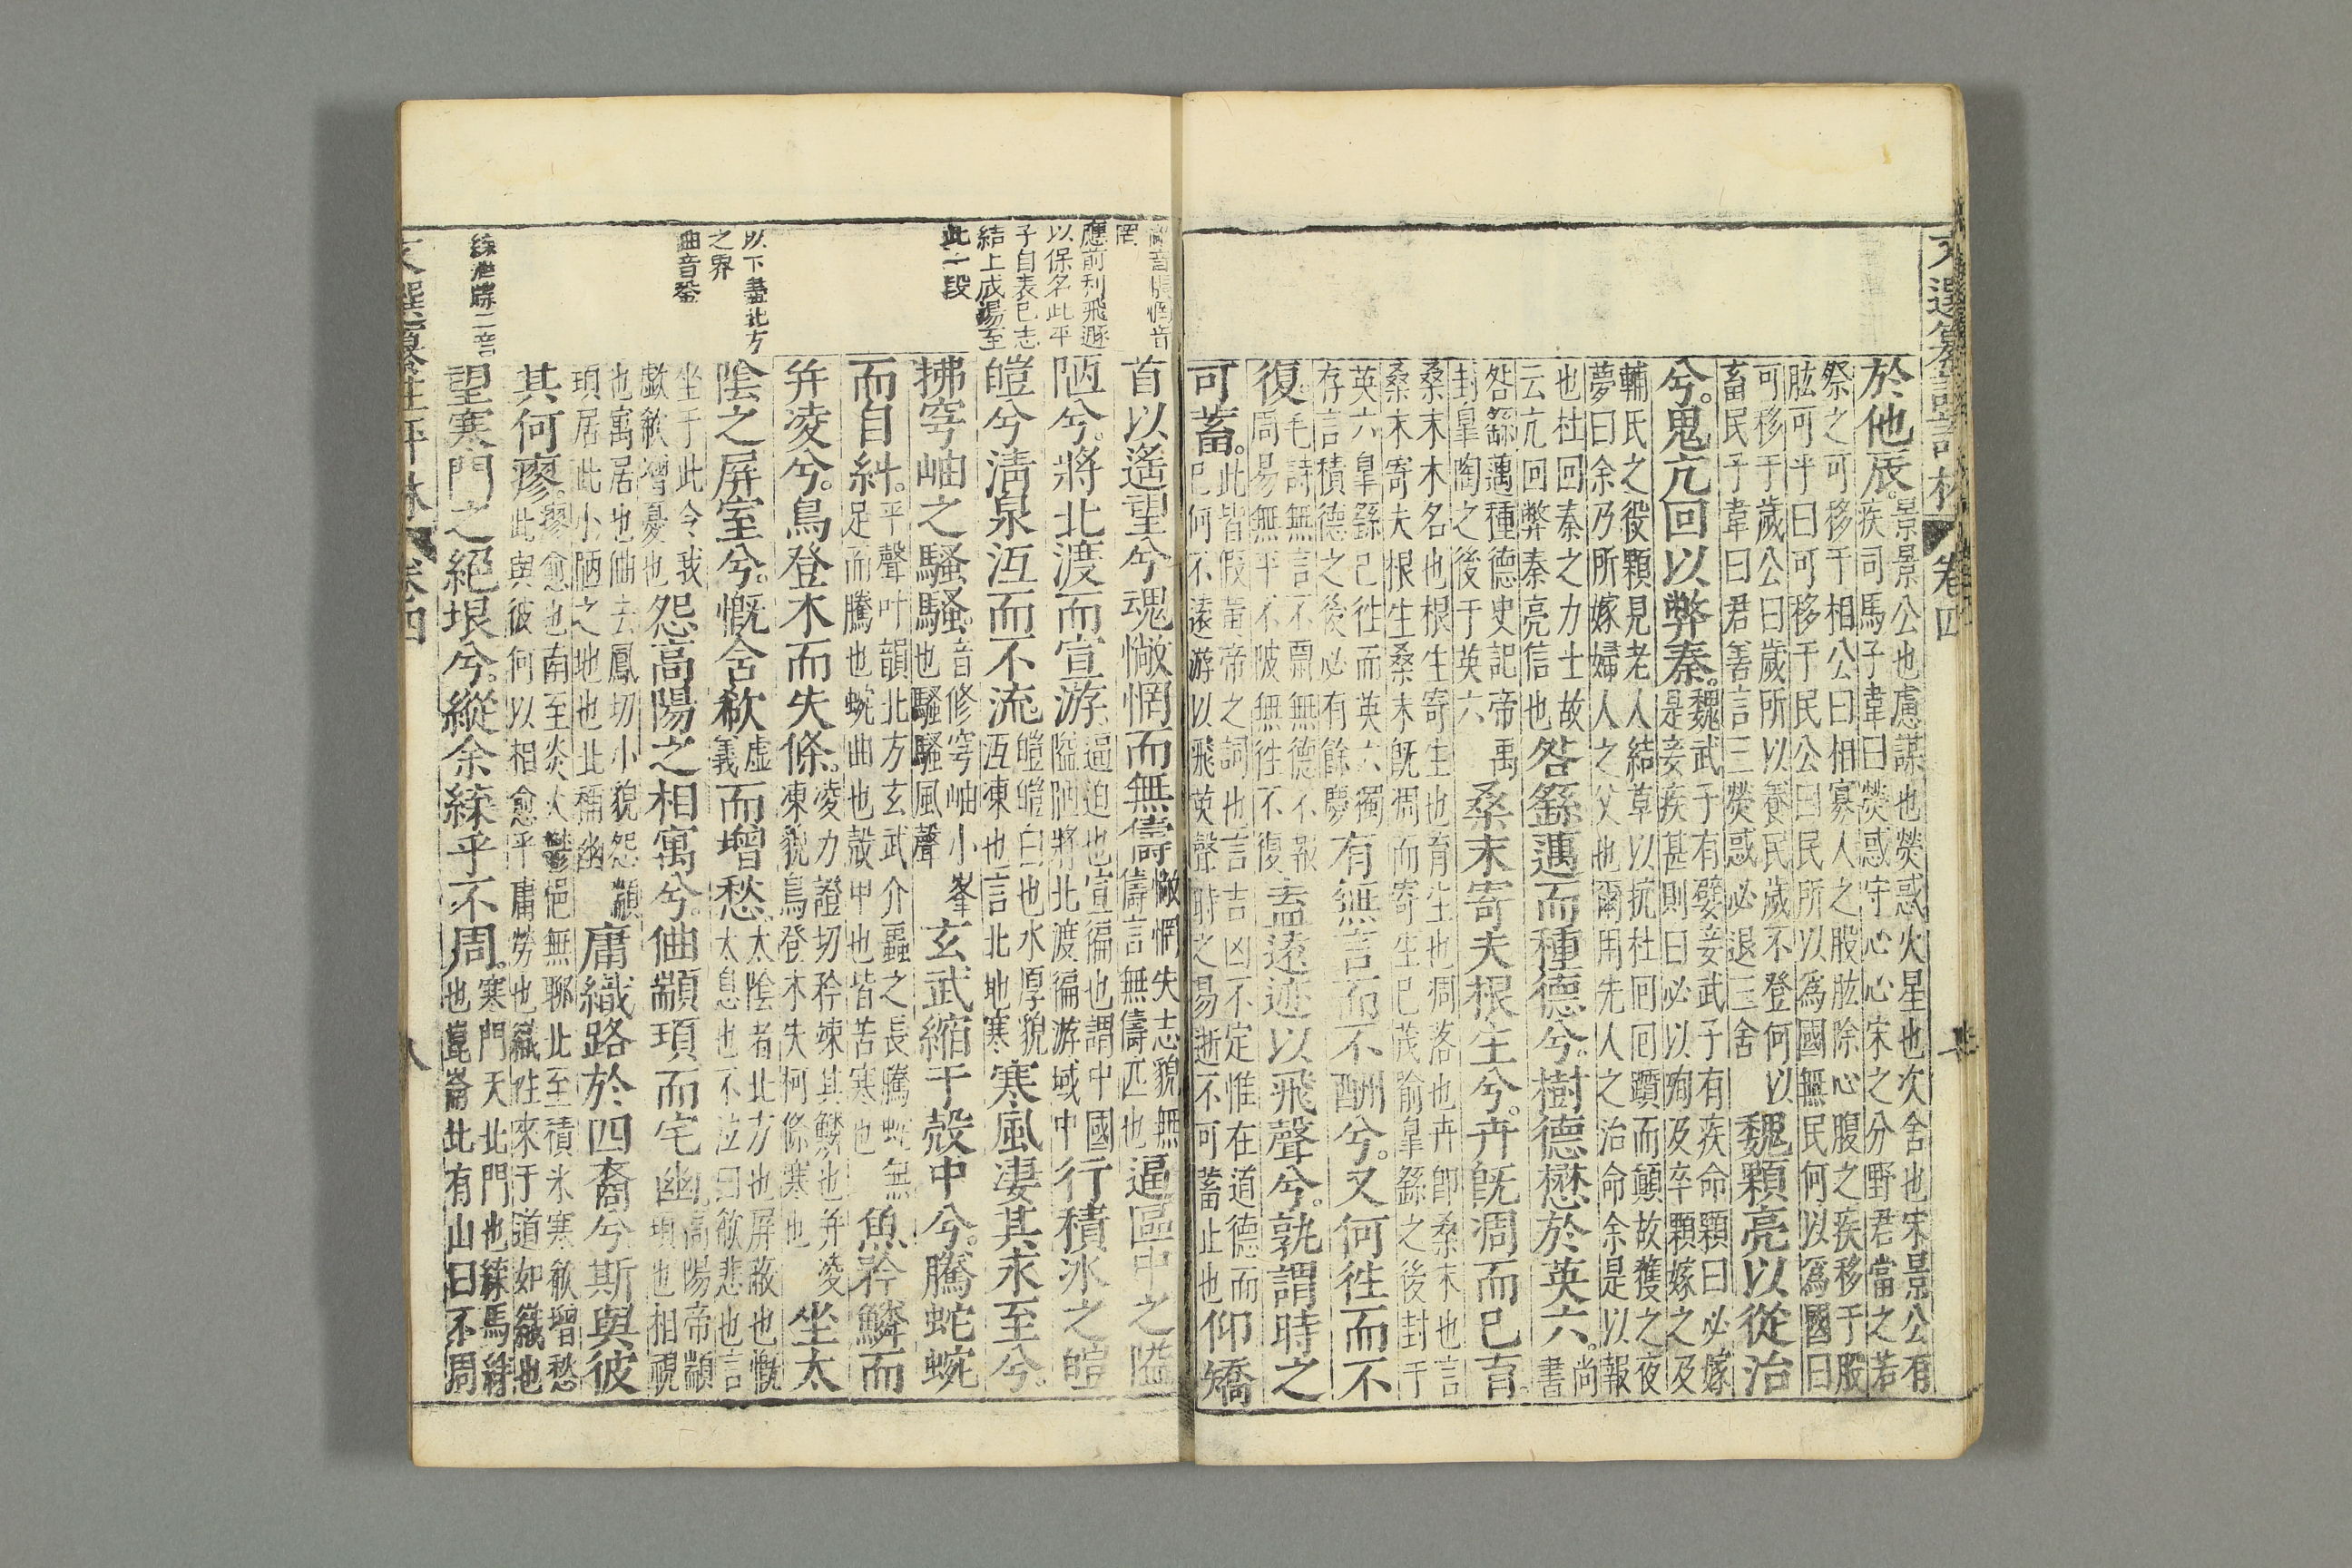 文選纂註評林 卷四
於他辰。景景公也慮謀也熒惑火星也次舍也宋景公有
疾司馬子韋曰熒惑守心心宋之分野君當之若
祭之可移于相公曰相寡人之股肱除心腹之疾移于股
肱可乎曰可移于民公曰民所以為國無民何以為國曰
可移于歲公曰歲所以養民歲不登何以
畜民子韋曰君善言三熒惑必退三舍
魏顆亮以從治
兮。鬼亢回以斃秦。魏武子有嬖妾武子有疾命顆曰必嫁
是妾疾甚則曰必以殉及卒顆嫁之及
輔氏之役顆見老人結草以抗杜回回躓而顛故獲之夜
夢曰余乃所嫁婦人之父也爾用先人之治命余是以報
也杜回秦之力士故
云亢回斃秦亮信也
咎繇邁而種德兮。樹德懋於英六。尚書
咎繇邁種德史記帝禹
封皐陶之後于英六
桑末寄夫根生兮。卉旣凋而已育。
桑末木名也根生寄生也育生也凋落也卉卽桑末也言
桑末寄夫根生桑末旣凋而寄生已茂喻皐繇之後封于
英六皐繇已徃而英六獨
存言積德之後必有餘慶
有無言而不酬兮。又何徃而不
復。毛詩無言不酬無德不報
周易無平不陂無徃不復
盍遠迹以飛聲兮。孰謂時之
可蓄。此皆假黃帝之詞也言吉凶不定惟在道德而
已何不遠游以飛英聲時之易逝不可蓄止也
仰矯
首以遙望兮魂懒惘而無儔懒惘失志貌無
儔言無儔匹也
逼區中之隘
陋兮。將北渡而宣游。逼迫也宣徧也謂中國
隘陋將北渡徧游域中
行積冰之皚
皚兮清泉沍而不流。皚皚白也水厚貌
沍凍也言北地寒
寒風凄其永至兮。
拂穹岫之騷騷。音修穹岫小峯
也騷騷風聲
玄武縮于殼中兮。騰蛇蜿
而自糾。平聲叶韻北方玄武介蟲之長騰蛇無
足而騰也蜿曲也殼甲也皆苦寒也
魚矜鱗而
并凌兮。鳥登木而失條。凌力證切矜竦其鱗也并凌
凍貌鳥登木失柯條寒也
坐太
陰之屏室兮。慨含欷虛
義
而增愁。太陰者北方也屏蔽也慨
太息也不泣曰欷悲也言
坐于此令我
歔欷增憂也
怨高陽之相寓兮。伷顓頊而宅幽高陽帝顓
頊也相視
也寓居也伷去鳳切小貌怨顓
頊居此小陋之地也北稱幽
庸織路於四裔兮斯與彼
其何廖。廖愈也南至炎火鬱悒無聊北至積氷寒欷增愁
此與彼何以相愈乎庸勞也織徃來于道如織也
望寒門之絕垠兮。縱余緤乎不周。寒門天北門也緤馬韁
也崑崙北有山曰不周
音惘音
罔
應前利飛遯
以保名此平
子自表已志
結上成湯至
此一段
以下盡北方
之界
伷音
緤音
文選纂註評林 卷四
八